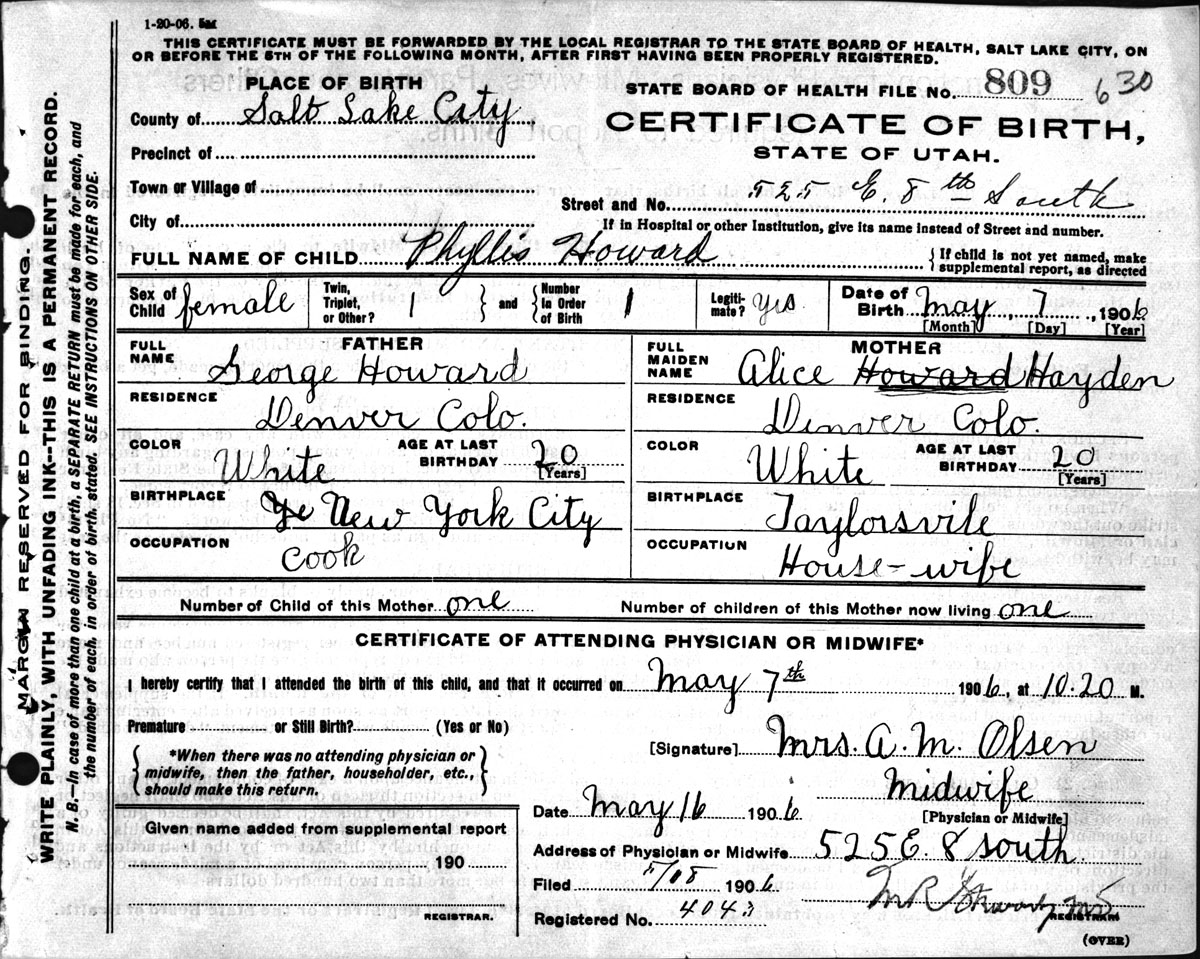 1-20-06.
THIS CERTIFICATE MUST BE FORWARDED BY THE LOCAL REGISTRAR TO THE STATE BOARD OF HEALTH, SALT LAKE CITY, ON
OR BEFORE THE 5TH OF THE FOLLOWING MONTH, AFTER FIRST HAVING BEEN PROPERLY REGISTERED.
PLACE OF BIRTH
STATE BOARD OF HEALTH FILE NO. 809 630
County of Salt Lake City
CERTIFICATE OF BIRTH,
STATE OF UTAH.
Precinct of
Town or Village of
Street and No. 525 E. 8th South
City of
If in Hospital or other Institution, give its name instead of Street and number.
FULL NAME OF CHILD Phyllis Howard
{If child is not yet named, make
supplemental report, as directed
Sex of Child female
Twin, Triplet, or Other? 1 } and { Number in Order of Birth 1
Legitimate? yes
Date of Birth May 7, 1906
[Month] [Day] [Year]
FATHER
FULL NAME George Howard
RESIDENCE Denver Colo.
COLOR White
AGE AT LAST BIRTHDAY 20 [Years]
BIRTHPLACE Ye New York City
OCCUPATION Cook
MOTHER
FULL MAIDEN NAME Alice Howard Hayden
RESIDENCE Denver Colo.
COLOR White
AGE AT LAST BIRTHDAY 20 [Years]
BIRTHPLACE Taylorsvile
OCCUPATION House-wife
Number of Child of this Mother one
Number of children of this Mother now living one
CERTIFICATE OF ATTENDING PHYSICIAN OR MIDWIFE*
I hereby certify that I attended the birth of this child, and that it occurred on May 7th 1906, at 10.20 M.
Premature or Still Birth? (Yes or No)
{*When there was no attending physician or
midwife, then the father, householder, etc.,
should make this return.}
[Signature] Mrs. A. M. Olsen
Midwife
[Physician or Midwife]
Date May 16 1906
Given name added from supplemental report
190
REGISTRAR.
Address of Physician or Midwife 525 E. 8 South.
Filed 1906
REGISTRAR
Registered No. 4043
(OVER)
MARGIN RESERVED FOR BINDING.
WRITE PLAINLY, WITH UNFADING INK--THIS IS A PERMANENT RECORD.
N. B.—In case of more than one child at a birth, a SEPARATE RETURN must be made for each, and
the number of each, in order of birth, stated. SEE INSTRUCTIONS ON OTHER SIDE.